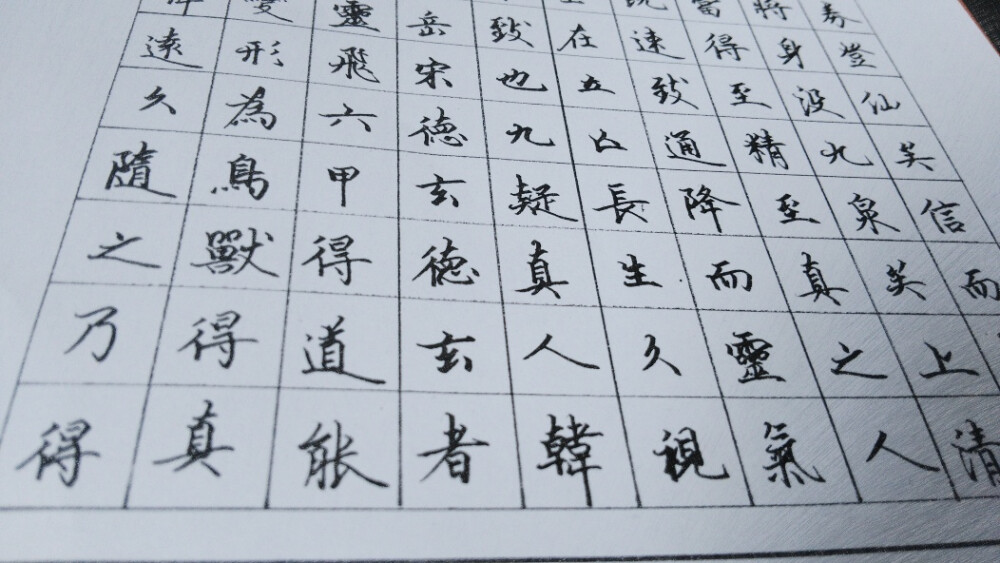 劵登仙矣信而
將身没九泉矣上清
當得至精至真之人
速致通降而靈氣
在五以長生久視
致也九疑真人韓
岳宋德玄德玄者
靈飛六甲得道能
變形為鳥獸得真
遠久隨之乃得